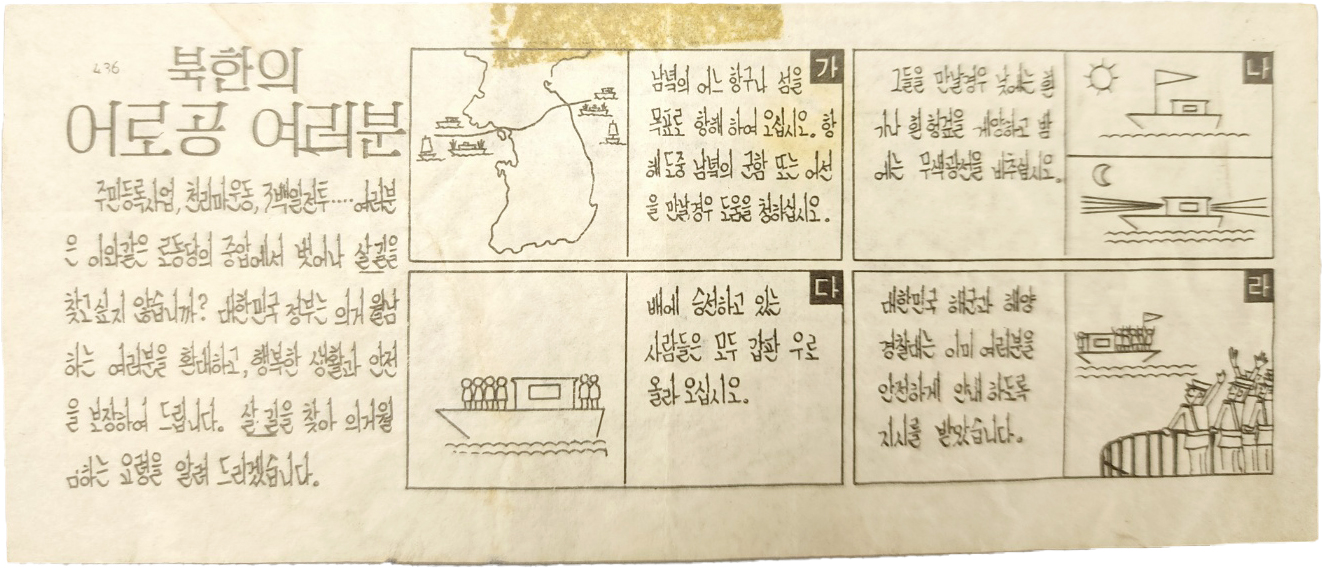 436
북한의
어로공 여러분
주민등록사업, 천리마운동, 3백일전투····여러분
은 이와같은 로동당의 중압에서 벗어나 살길을
찾고싶지 않습니까? 대한민국 정부는 의거 월남
하는 여러분을 환대하고, 행복한 생활과 안전
을 보장하여 드립니다. 살길을 찾아 의거월
남하는 요령을 알려 드리겠습니다.
가
남녘의 어느 항구나 섬을
목표로 항해 하여 오십시오. 항
해 도중 남녘의 군함 또는 어선
을 만날경우 도움을 청하십시오.
나
그들을 만날경우 낮에는 흰
기나 흰 헝겊을 게양하고 밤
에는 무색광선을 비추십시오.
다
배에 승선하고 있는
사람들은 모두 갑판 우로
올라 오십시오.
라
대한민국 해군과 해양
경찰대는 이미 여러분을
안전하게 안내 하도록
지시를 받았습니다.